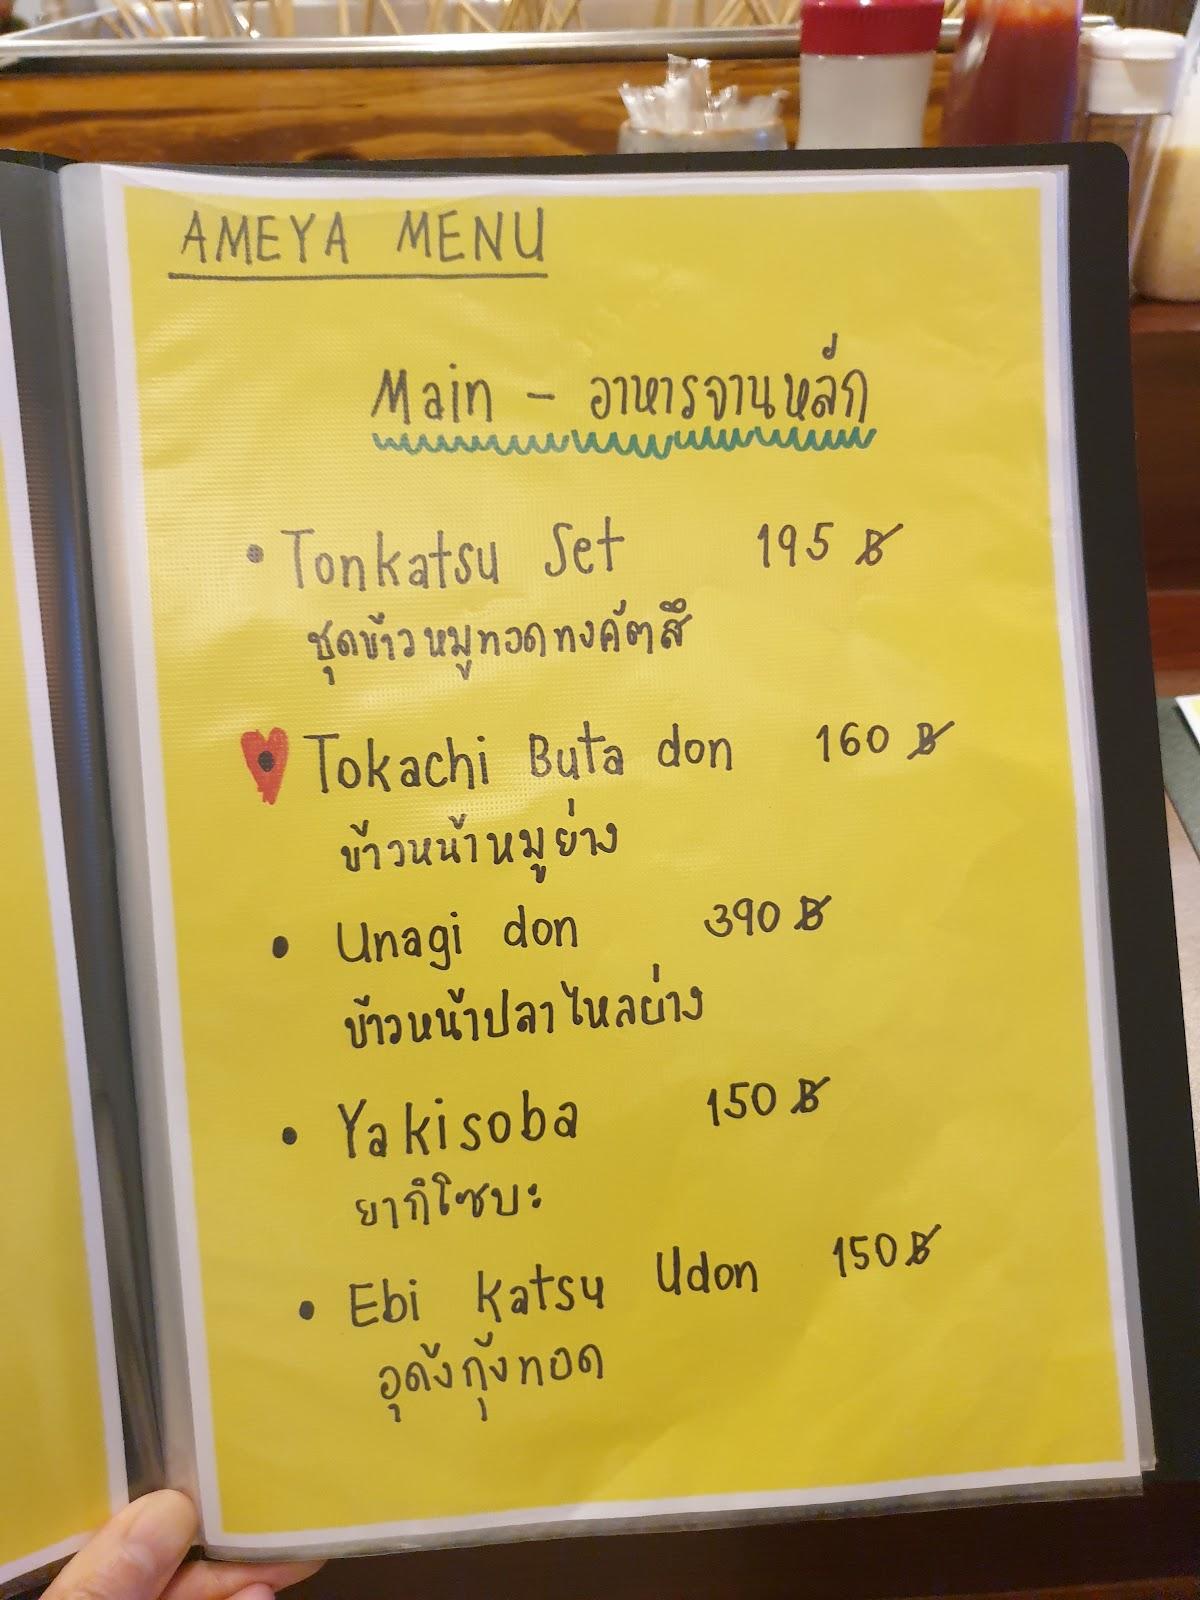 AMEYA MENU
Main - อาหารจานหลัก
• Tonkatsu Set 195 ฿
ชุดข้าวหมูทอดทงคัตสึ
• Tokachi Buta don 160 ฿
ข้าวหน้าหมูย่าง
• Unagi don 390 ฿
ข้าวหน้าปลาไหลย่าง
• Yakisoba 150 ฿
ยากิโซบะ
• Ebi Katsu Udon 150 ฿
อุด้งกุ้งทอด